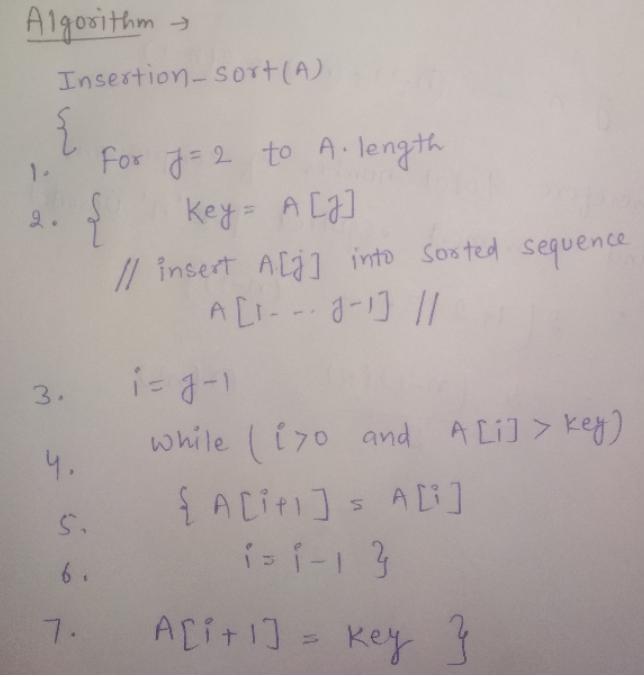 Algorithm →
Insertion-sort(A)
{
1. For j=2 to A.length
2. { Key = A[j]
// insert A[j] into sorted sequence
A[1--.. j-1] //
3. i=j-1
4. while (i>0 and A[i] > Key)
5. { A[i+1] = A[i]
6. i=i-1 }
7. A[i+1] = Key }